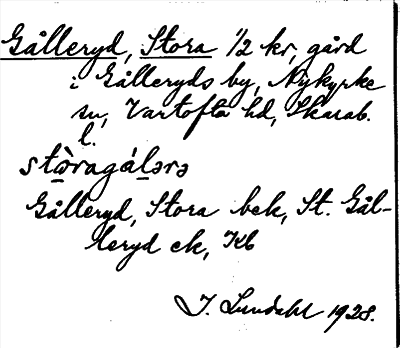 Gålleryd, Stora ½ kr, gård
i Gålleryds by, Nykyrke
sn, Vartofta hd, Skarab.
l.
stɷ̀ragálərə
Gålleryd, Stora bek, St. Gål-
leryd ek, Kb
J. Lundahl 1928.